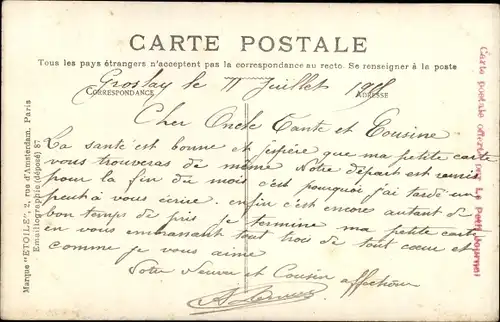 CARTE POSTALE
Tous les pays étrangers n'acceptent pas la correspondance au recto. Se renseigner à la poste
Groslay le 11 Juillet
CORRESPONDANCE ADRESSE
Cher Oncle Tante et Cousine
La santé est bonne et j'espère que ma petite carte
vous trouveras de même Notre départ est remis
pour la fin du mois c'est pourquoi j'ai tardé un
peut à vous écrire. enfin c'est encore autant de
bon temps de pris je termine ma petite carte
en vous embrassant tout trois de tout cœur et
comme je vous aime
Votre Neveu et Cousin affectueux
Marque "ETOILE", 2, rue d'Amsterdam, Paris
Emaillographie (déposé) 87
Carte postale offerte par Le Petit Journal